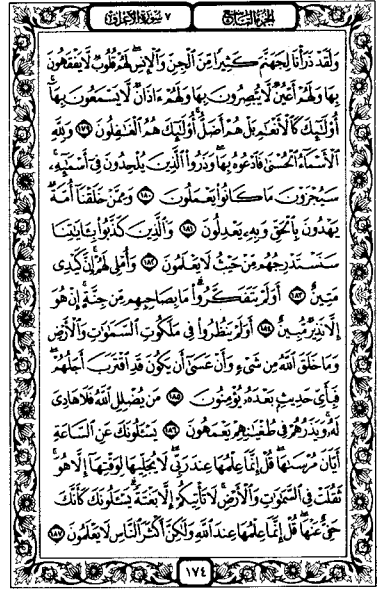 ٧ سورة الأعراف
الجزء التاسع
وَلَقَدْ ذَرَأْنَا لِجَهَنَّمَ كَثِيرًا مِّنَ ٱلْجِنِّ وَٱلْإِنسِ لَهُمْ قُلُوبٌ لَّا يَفْقَهُونَ
بِهَا وَلَهُمْ أَعْيُنٌ لَّا يُبْصِرُونَ بِهَا وَلَهُمْ ءَاذَانٌ لَّا يَسْمَعُونَ بِهَآ
أُو۟لَٰٓئِكَ كَٱلْأَنْعَٰمِ بَلْ هُمْ أَضَلُّ أُو۟لَٰٓئِكَ هُمُ ٱلْغَٰفِلُونَ ١٧٩ وَلِلَّهِ
ٱلْأَسْمَآءُ ٱلْحُسْنَىٰ فَٱدْعُوهُ بِهَا وَذَرُوا۟ ٱلَّذِينَ يُلْحِدُونَ فِىٓ أَسْمَٰٓئِهِۦ
سَيُجْزَوْنَ مَا كَانُوا۟ يَعْمَلُونَ ١٨٠ وَمِمَّنْ خَلَقْنَآ أُمَّةٌ
يَهْدُونَ بِٱلْحَقِّ وَبِهِۦ يَعْدِلُونَ ١٨١ وَٱلَّذِينَ كَذَّبُوا۟ بِـَٔايَٰتِنَا
سَنَسْتَدْرِجُهُم مِّنْ حَيْثُ لَا يَعْلَمُونَ ١٨٢ وَأُمْلِى لَهُمْ إِنَّ كَيْدِى
مَتِينٌ ١٨٣ أَوَلَمْ يَتَفَكَّرُوا۟ مَا بِصَاحِبِهِم مِّن جِنَّةٍ إِنْ هُوَ
إِلَّا نَذِيرٌ مُّبِينٌ ١٨٤ أَوَلَمْ يَنظُرُوا۟ فِى مَلَكُوتِ ٱلسَّمَٰوَٰتِ وَٱلْأَرْضِ
وَمَا خَلَقَ ٱللَّهُ مِن شَىْءٍ وَأَنْ عَسَىٰٓ أَن يَكُونَ قَدِ ٱقْتَرَبَ أَجَلُهُمْ
فَبِأَىِّ حَدِيثٍۭ بَعْدَهُۥ يُؤْمِنُونَ ١٨٥ مَن يُضْلِلِ ٱللَّهُ فَلَا هَادِىَ
لَهُۥ وَيَذَرُهُمْ فِى طُغْيَٰنِهِمْ يَعْمَهُونَ ١٨٦ يَسْـَٔلُونَكَ عَنِ ٱلسَّاعَةِ
أَيَّانَ مُرْسَىٰهَا قُلْ إِنَّمَا عِلْمُهَا عِندَ رَبِّى لَا يُجَلِّيهَا لِوَقْتِهَآ إِلَّا هُوَ
ثَقُلَتْ فِى ٱلسَّمَٰوَٰتِ وَٱلْأَرْضِ لَا تَأْتِيكُمْ إِلَّا بَغْتَةً يَسْـَٔلُونَكَ كَأَنَّكَ
حَفِىٌّ عَنْهَا قُلْ إِنَّمَا عِلْمُهَا عِندَ ٱللَّهِ وَلَٰكِنَّ أَكْثَرَ ٱلنَّاسِ لَا يَعْلَمُونَ ١٨٧
١٧٤